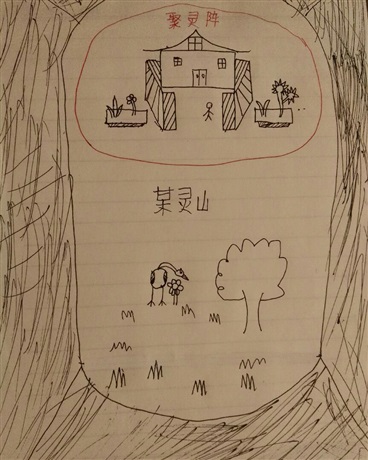 聚灵阵
某灵山